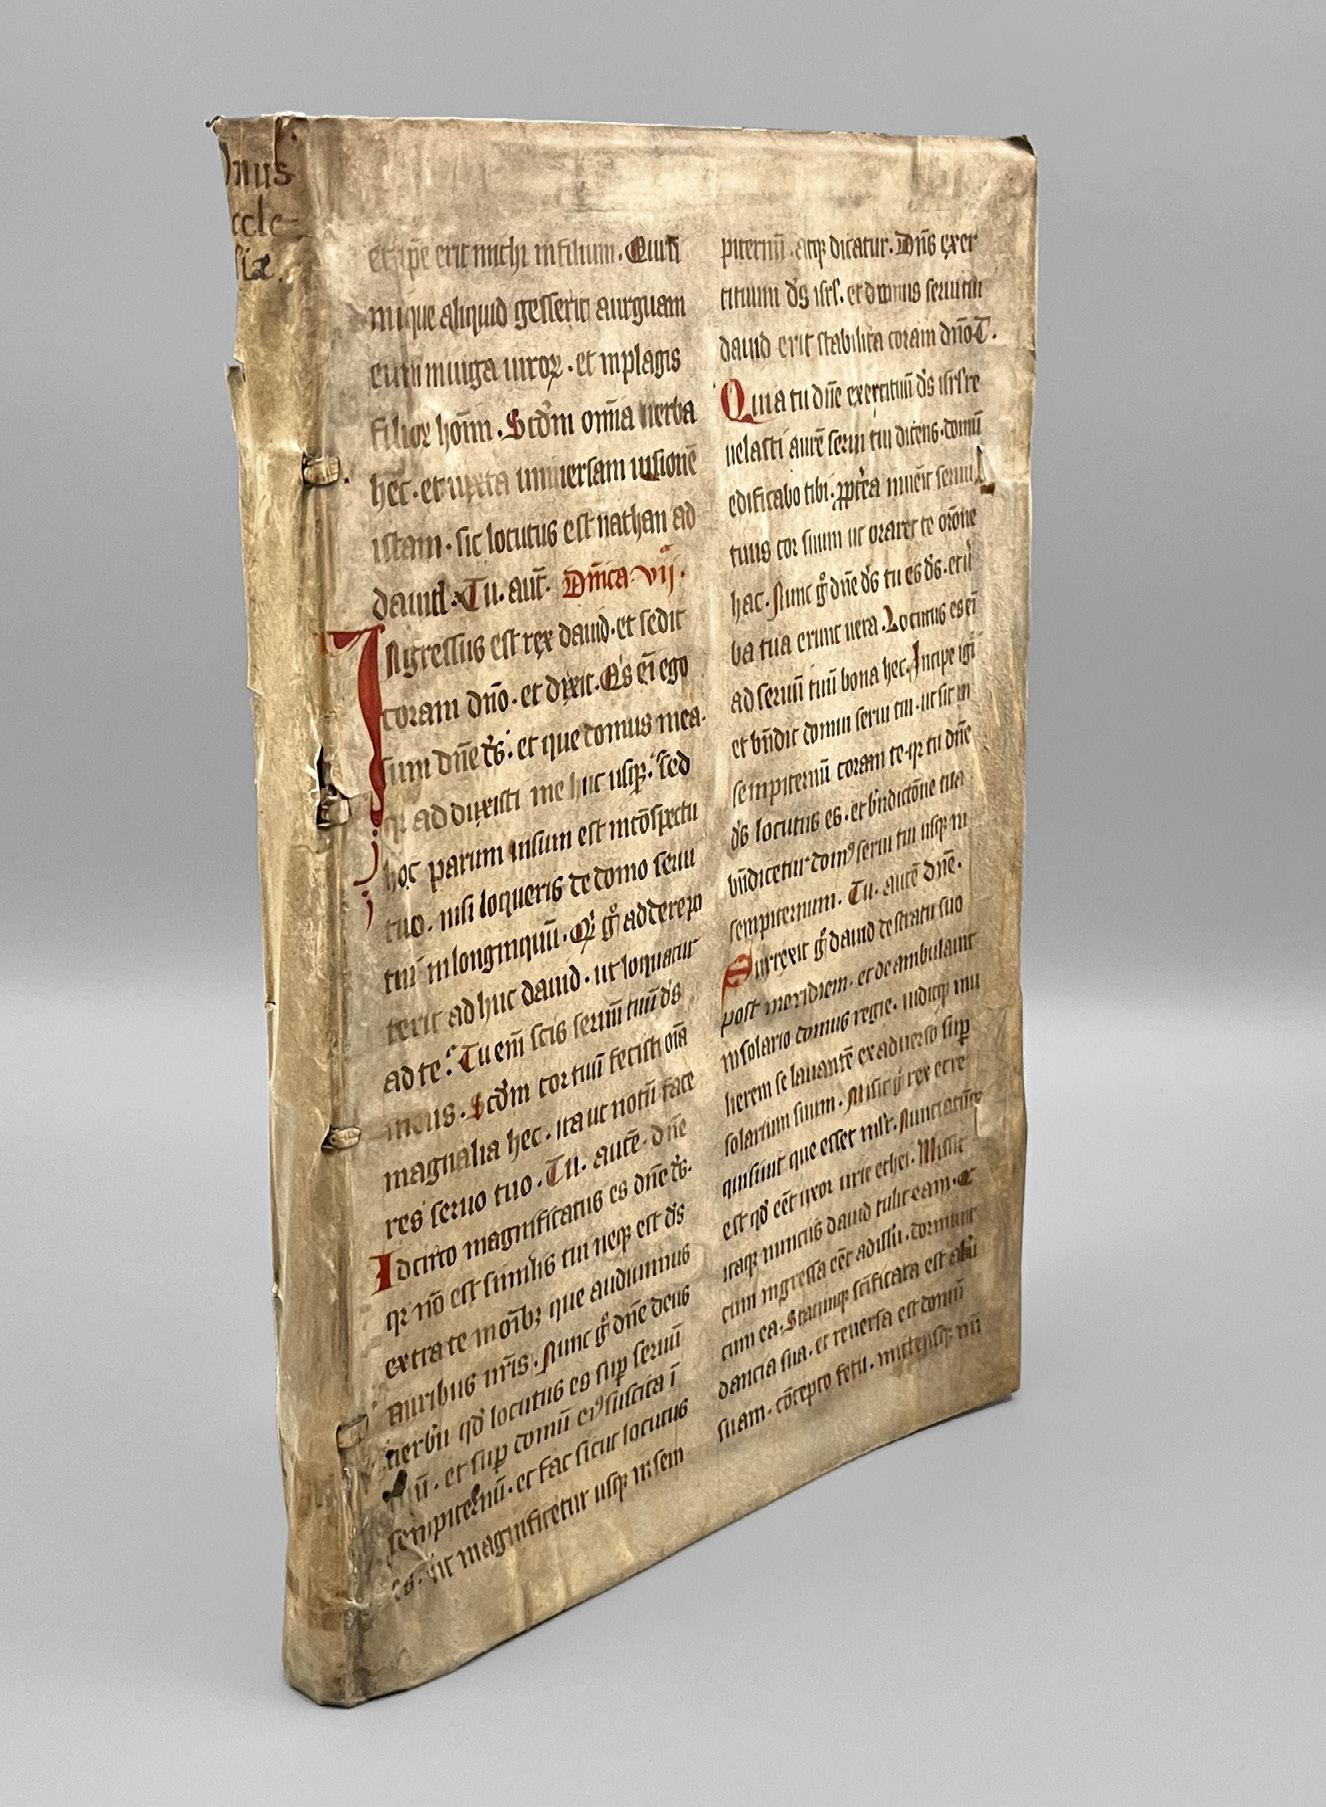 Onus
eccle-
siæ.
et ip̄e erit michi in filium. Qui si
inique aliquid gesserit arguam
eum in uirga uiroꝝ. et in plagis
filioꝝ hoı̄m. Scd̄m om̄ia uerba
hec. et iuxta uniuersam uisionē
istam. sic locutus est nathan ad
dauid. Tu. aūt. Dn̄ica. vij.
Ingressus est rex dauid. et sedit
coram dn̄o. et dixit. Q̄s eı̄ ego
sum dn̄e d̄s. et que domus mea.
qꝛ adduxisti me huc usqꝫ. Sed
hoc parum uisum est in cōspectu
tuo. nisi loqueris de domo serui
tui in longinquū. Q̄ g̊ addere po
terit ad huc dauid. ut loquatur
ad te. Tu em̄ scis seruū tuū d̄s
meus. Scd̄m cor tuū fecisti oı̄a
magnalia hec. ita ut notū face
res seruo tuo. Tu. autē. dn̄e
Idcirco magnificatus es dn̄e d̄s.
qꝛ nō est similis tui neqꝫ est d̄s
extra te in oı̄bꝫ que audiuimus
auribus nr̄is. Nunc g̊ dn̄e deus
uerbū qd̄ locutus es sup̱ seruū
tuū. et sup̱ domū eiꝰ suscita ı̄
sempiternū. et fac sicut locutus
es. ut magnificetur usqꝫ in sem
piternū. atqꝫ dicatur. Dn̄s exer
cituum d̄s isrl. et domus serui tui
dauid erit stabilita coram dn̄o. T.
Quia tu dn̄e exercituū d̄s isrl re
uelasti aurē serui tui dicens. domū
edificabo tibi. ꝓpt̄ea inuēit seruus
tuus cor suum ut oraret te or̄one
hac. Nunc g̊ dn̄e d̄s tu es d̄s. et ū
ba tua erunt uera. Locutus es eı̄
ad seruū tuū bona hec. Incipe igı̄
et bn̄dic domui serui tui. ut sit in
sempiternū coram te. qꝛ tu dn̄e
d̄s locutus es. et bn̄dictōne tua
bn̄dicetur domꝰ serui tui usqꝫ in
sempiternum. Tu. autē dn̄e.
Surrexit g̊ dauid de stratu suo
post meridiem. et deambulauit
in solario domus regie. uiditqꝫ mu
lierem se lauantē ex aduerso sup̱
solarium suum. Misit g̊ rex et re
quisiuit que esset mlr̄. Nunciatūqꝫ
est qd̄ eēt uxor urie ethei. Missis
itaqꝫ nunciis dauid tulit eam. Q̄
cum ingressa eēt ad illū. dormiuit
cum ea. Statimqꝫ sc̄ificata est ab ı̄mū
dancia sua. et reuersa est domū
suam. cōcepto fetu. mittensqꝫ nū